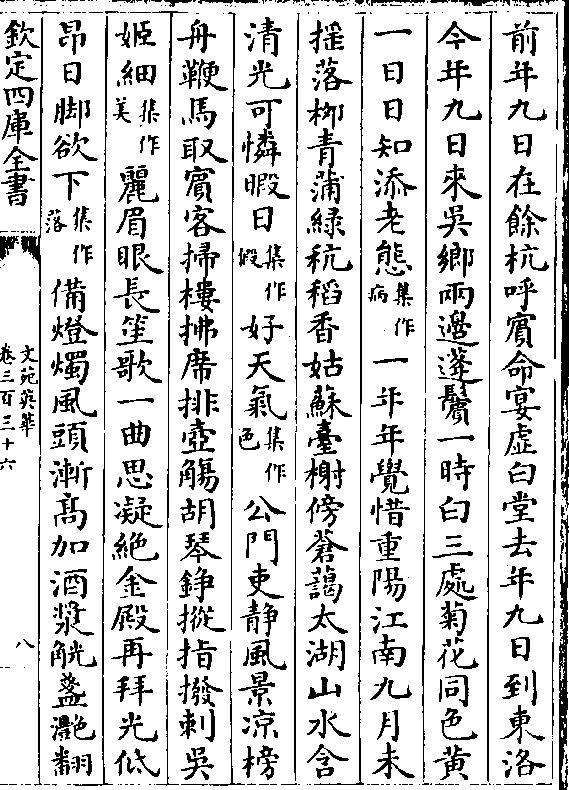 前年九日在餘杭呼賓命宴虛白堂去年九日到東洛
今年九日來吳鄉兩邊蓬鬢一時白三處菊花同色黃
一日日知添老態集作病一年年覺惜重陽江南九月未
揺落栁青蒲綠秔稻香姑蘇臺榭傍蒼藹太湖山水含
清光可憐暇日集作假好天氣集作色公門吏静風景凉榜
舟鞭馬取賓客掃樓拂席排壺觴胡琴錚摐指撥刺吳
姬細集作美麗眉眼長笙歌一曲思凝絶金殿再拜光低
昂日脚欲下集作落備燈燭風頭漸髙加酒漿觥盞灔翻
欽定四庫全書
文苑英華
卷三百三十六
八